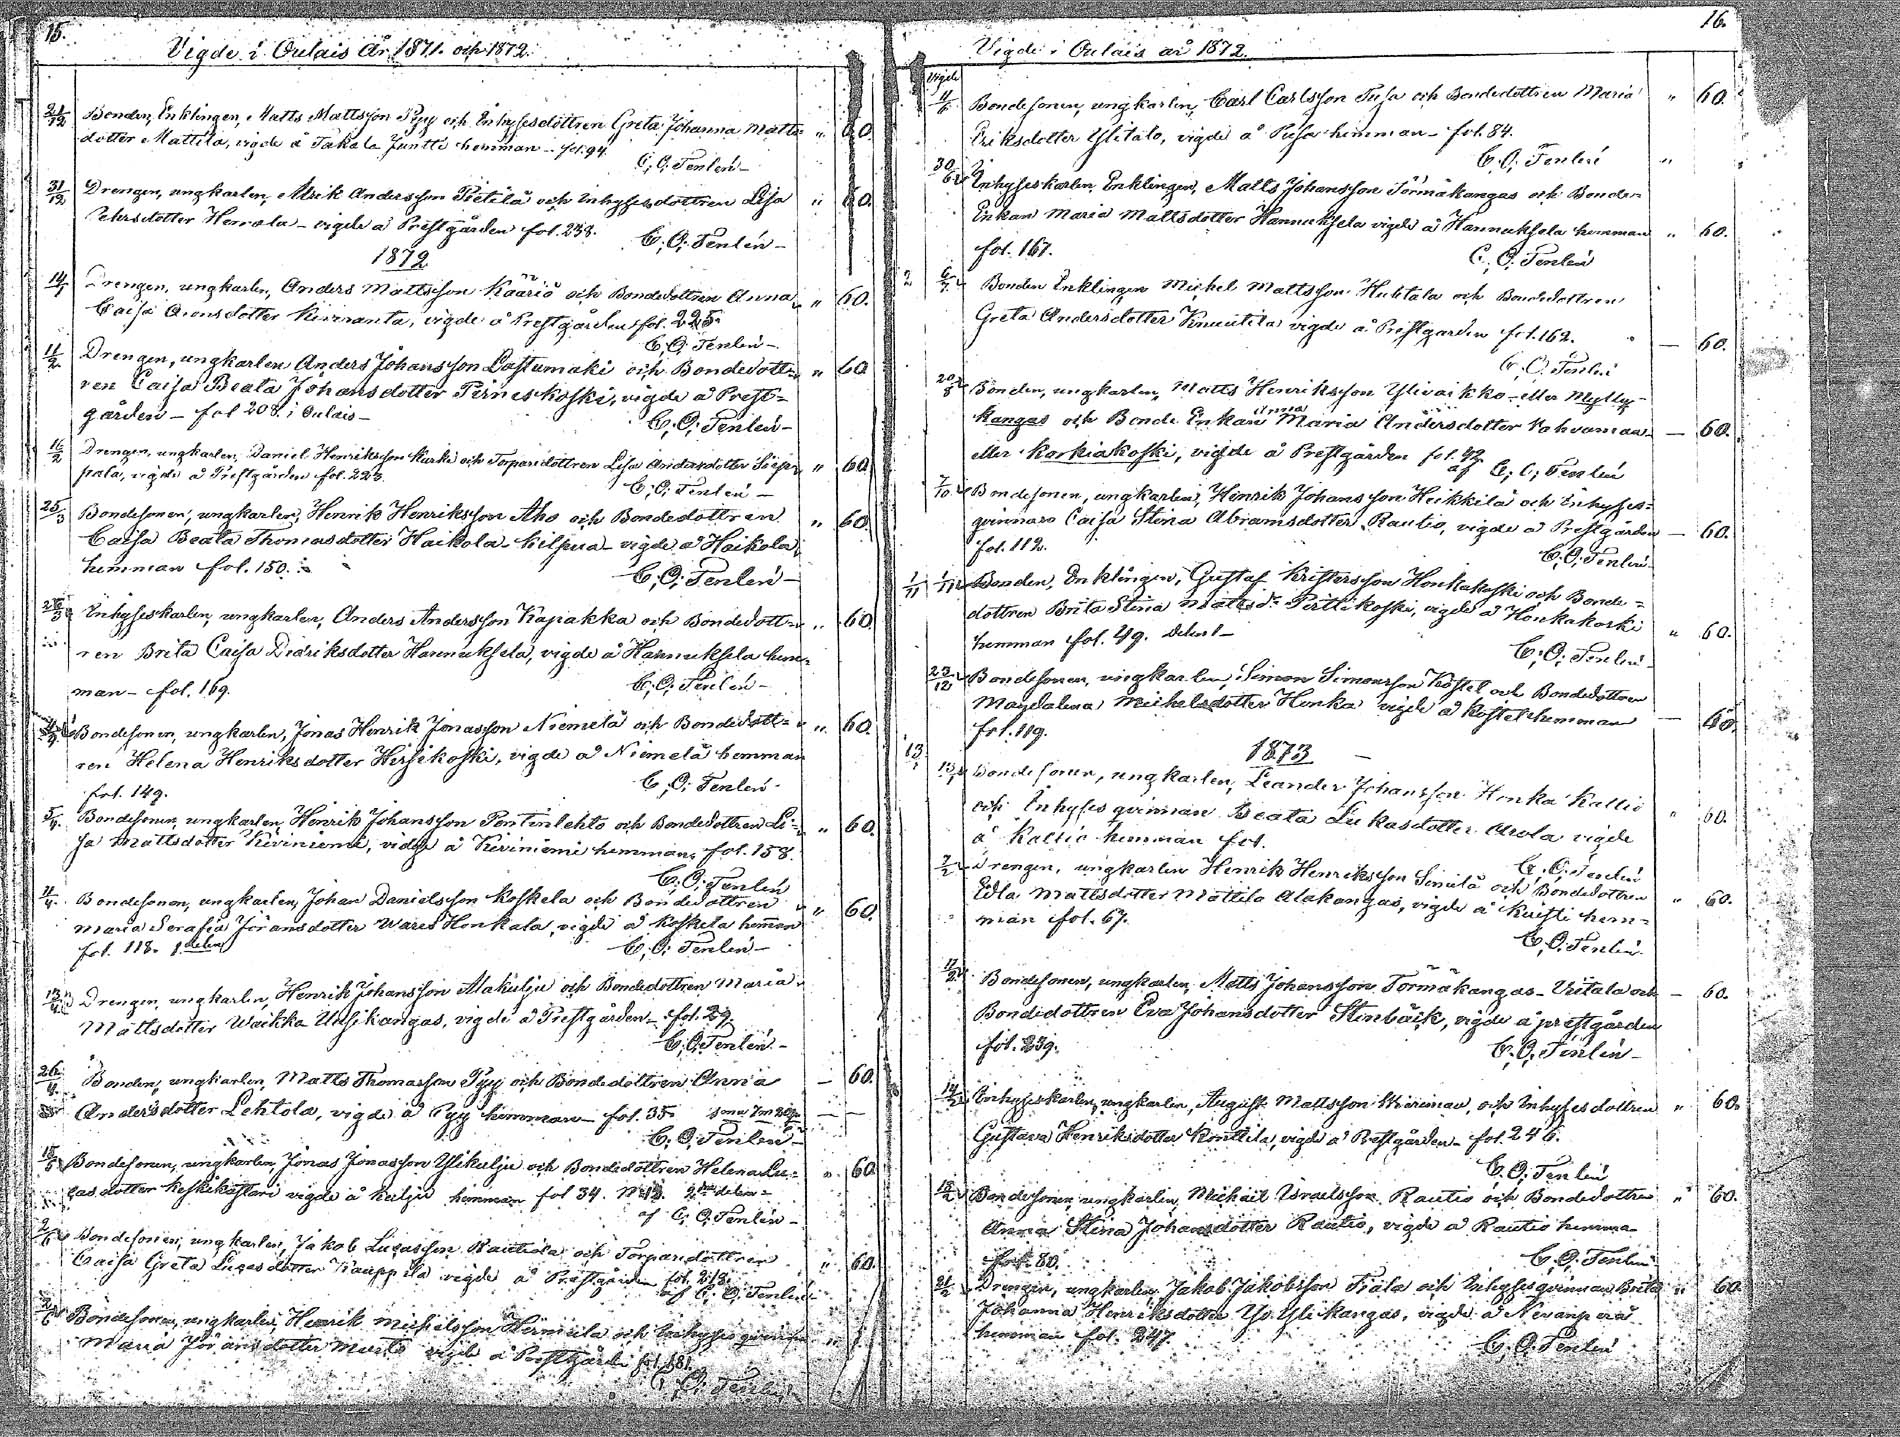 15.
Vigde i Oulais År 1871. och 1872.
21/12 Bonden, Enklingen, Matts Mattsson Pyy och Inhysesdottren Greta Johanna Matts- „ 60.
dotter Mattila, vigde å Takala Juntti hemman – fol. 94.
C. O. Tenlén –
31/12 Drengen, ungkarlen, Abrik Andersson Pietilä och Inhysesdottren Lisa „ 60.
Pehrsdotter Herrala – vigde å Prestgården fol. 233.
C. O. Tenlén –
1872
14/1 Drengen, ungkarlen, Anders Mattsson Kääriö och Bondedottren Anna „ 60.
Caisa Aronsdotter Kiviranta, vigde å Prestgården fol. 225.
C. O. Tenlén –
11/2 Drengen, ungkarlen Anders Johansson Lastumäki och Bondedott= „ 60
ren Caisa Beata Johansdotter Pirneskoski, vigde å Prest=
gården – fol 208. i Oulais –
C. O. Tenlén –
16/2 Drengen, ungkarlen, Daniel Henriksson Kurki och Torparedottren Lisa Andersdotter „ 60
pala, vigde å Prestgården fol. 223.
C. O. Tenlén –
25/3 Bondesonen, ungkarlen, Henrik Henriksson Aho och Bondedottren „ 60.
Caisa Beata Thomasdotter Haikola – Kilpua – vigde å Haikola
hemman fol. 150.
C. O. Tenlén –
26/3 Inhyseskarlen, ungkarlen, Anders Andersson Kapakka och Bondedott= „ 60.
ren Brita Caisa Didriksdotter Hannuksela, vigde å Hannuksela hem=
man – fol. 169.
C. O. Tenlén –
Bondesonen, ungkarlen, Jonas Henrik Jonasson Niemelä och Bondedott= „ 60.
ren Helena Henriksdotter Hirsikoski, vigde å Niemelä hemman
fol. 149.
C. O. Tenlén –
5/4 Bondesonen, ungkarlen, Henrik Johansson Pentinlehto och Bondedottren Li= „ 60.
sa Mattsdotter Kiviniemi, vidge å Kiviniemi hemman, fol. 158.
C. O. Tenlén
11/4 Bondesonen, ungkarlen, Johan Danielsson Koskela och Bondedottren „ 60.
Maria Serafia Jöransdotter Wares Honkala, vigde å Koskela hemman
fol. 118. 1 delen
C. O. Tenlén –
Drengen, ungkarlen, Henrik Johansson Alakulju och Bondedottren Maria
Mattsdotter Waikka Uusikangas, vigde å Prestgården – fol. 29.
C. O. Tenlén –
26/4 Bonden, ungkarlen, Matts Thomasson Pyy och Bondedottren Anna – 60.
Andersdotter Lehtola, vigde å Pyy hemman – fol. 35.
C. O. Tenlén –
18/5 Bondesonen, ungkarlen, Jonas Jonasson Ylikulju och Bondedottren Helena Lu= „ 60
casdotter Keskikastari vigde å Kulju hemman fol 34. 2dra delen =
af C. O. Tenlén –
2/6 Bondesonen, ungkarlen, Jakob Lucasson Rautiola och Torparedottren „ 60.
Caisa Greta Lucasdotter Kauppila vigde å Prestgården fol. 218.
af C. O. Tenlén
2/6 Bondesonen, ungkarlen, Henrik Michelsson Hermula och Inhysesqvinnan
Maria Jöransdotter Murto vigde å Prestgården fol. 181.
C. O. Tenlén
16.
Vigde i Oulais år 1872.
Vigde
Bondesonen, ungkarlen, Carl Carlsson Pusa och Bondedottren Maria „ 60.
Eriksdotter Ylitalo, vigde å Pusa hemman – fol. 84.
C. O. Tenlén „
30/6 Inhyseskarlen Enklingen, Matts Johansson Törmäkangas och Bonde
Enkan Maria Mattsdotter Hannuksela vigde å Hannuksela hemman „ 60.
fol. 167.
C. O. Tenlén
Bonden Enklingen Michel Mattsson Huhtala och Bondedottren
Greta Andersdotter Knuutila vigde å Prestgården fol. 162. – 60.
C. O. Tenlén
20/8 Bonden, ungkarlen, Matts Henriksson Ylivaikko – eller Mylly-
kangas och Bonde Enkan Anna Maria Andersdotter Kahvamaa – 60.
eller Korkiakoski, vigde å Prestgården fol. 42
af C. O. Tenlén
7/10 Bondesonen, ungkarlen, Henrik Johansson Heikkilä och Inhyses=
qvinnan Caisa Stina Abramsdotter Rautio, vigde å Prestgården – 60.
fol. 112.
C. O. Tenlén
1/11 Bonden, Enklingen, Gustaf Kristersson Honkakoski och Bonde=
dottren Brita Stina Mattsdr. Pirttikoski, vigde å Honkakoski
hemman fol. 49. „ 60.
C. O. Tenlén
23/12 Bondesonen, ungkarlen, Simon Simonsson Köstel och Bondedottren
Magdalena Michelsdotter Honka vigde å Köstel hemman – 60.
fol. 119.
1873
13/1 Bondesonen, ungkarlen, Leander Johansson Honka Kallio
och Inhysesqvinnan Beata Lukasdotter Arola vigde „ 60.
å Kallio hemman fol.
C. O. Tenlén
2/2 Drengen, ungkarlen Henrik Henriksson Similä och Bondedottren
Edla Mattsdotter Mattila Alakangas, vigde å Kuisti hem= „ 60.
man fol. 67.
C. O. Tenlén
Bondesonen, ungkarlen, Matts Johansson Törmäkangas – Uitala och – 60.
Bondedottren Eva Johansdotter Stenbäck, vigde å prestgården
fol. 239.
C. O. Tenlén –
14/2 Inhyseskarlen, ungkarlen, August Mattsson och Inhysesdottren „ 60.
Gustava Henriksdotter Konttila, vigde å Prestgården – fol. 246.
C. O. Tenlén
Bondesonen, ungkarlen, Michael Israelsson Rautio och Bondedottren „ 60.
Anna Stina Johansdotter Rautio, vigde å Rautio hemma
fol. 80.
C. O. Tenlén
21/2 Drengen, ungkarlen, Jakob Jakobsson Trätä och Inhysesqvinnan Brita „ 60.
Johanna Henriksdotter Ylikangas, vigde å Nevanperä
hemman fol. 247.
C. O. Tenlén